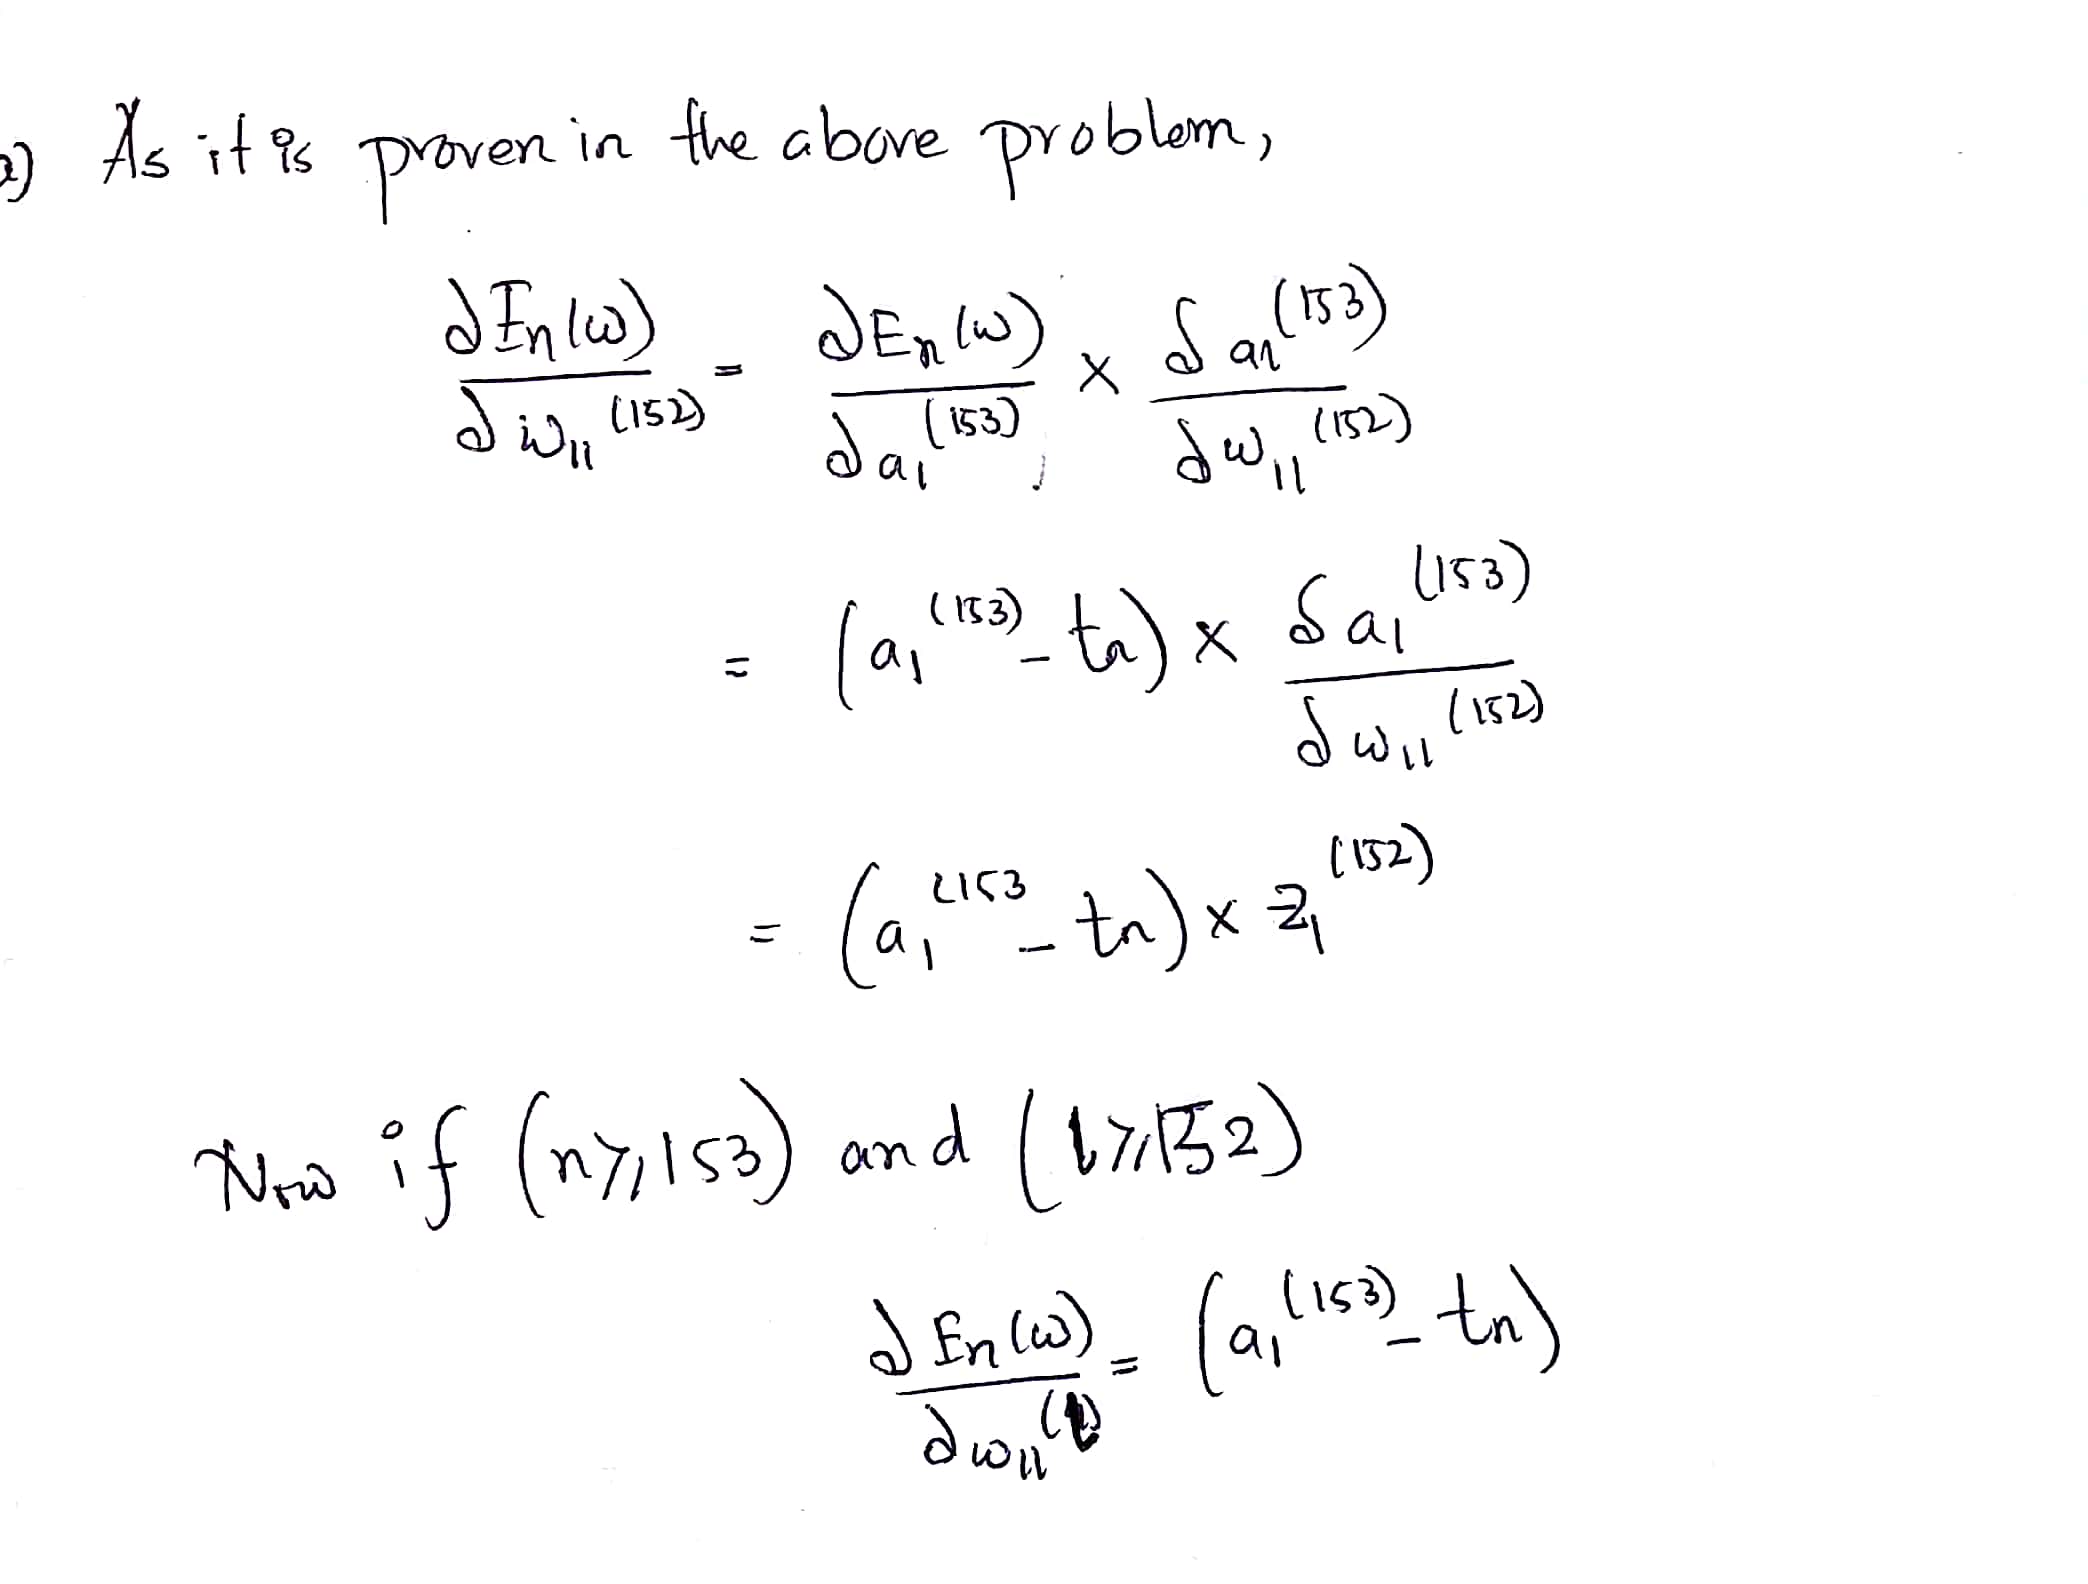 2) As it is proven in the above problem,
∂En(w) / ∂w₁₁⁽¹⁵²⁾ = ∂En(w) / ∂a₁⁽¹⁵³⁾ × δa₁⁽¹⁵³⁾ / δw₁₁⁽¹⁵²⁾
= (a₁⁽¹⁵³⁾ - tn) × δa₁⁽¹⁵³⁾ / δw₁₁⁽¹⁵²⁾
= (a₁⁽¹⁵³ - tn) × z₁⁽¹⁵²⁾
Now if (n ⩾ 153) and (l ⩾ 152)
∂En(w) / ∂w₁₁⁽ˡ⁾ = (a₁⁽¹⁵³⁾ - tn)